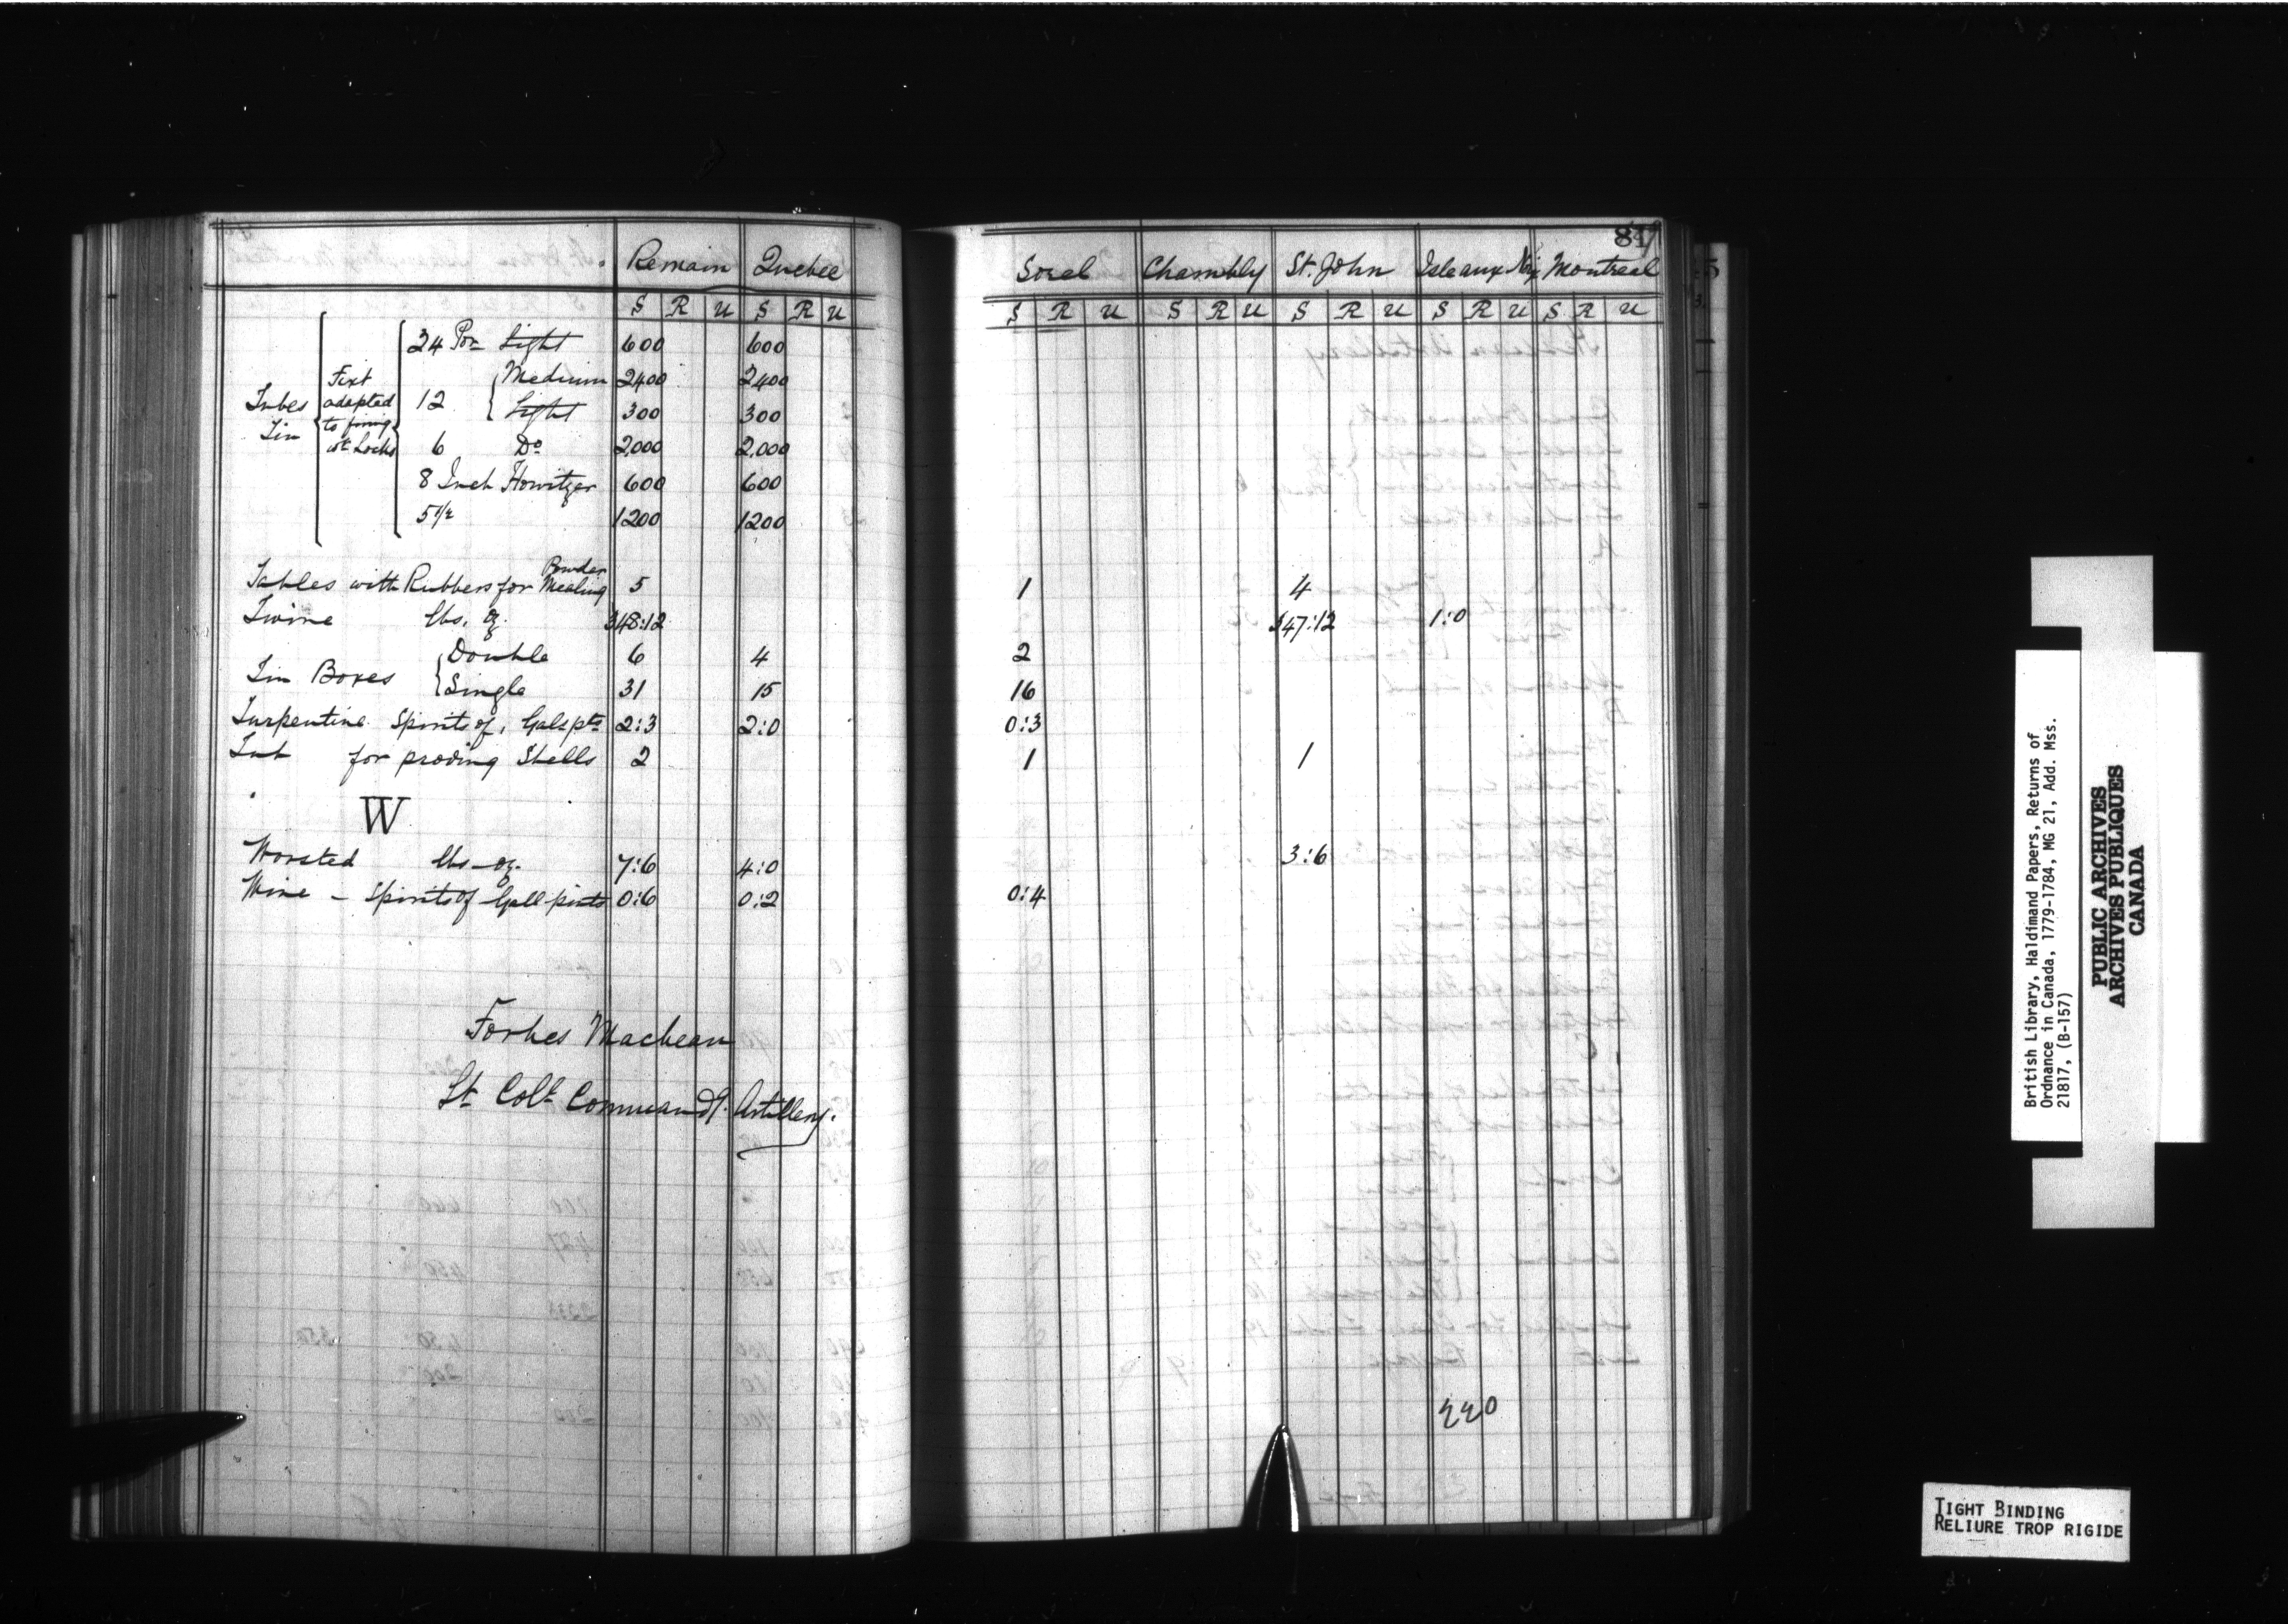 Remain Quebec
S R U S R U
Tubes Tin { Fixt adapted to firing wt Locks { 24 Por Light 600 600
12 { Medium 2400 2400
Light 300 300
6 Do 2,000 2,000
8 Inch Howitzer 600 600
5 1/2 1200 1200
Tables with Rubbers for Mealing Powder 5
Twine lbs. oz. 348:12
Tin Boxes { Double 6 4
Single 31 15
Turpentine Spirits of, Gals pts 2:3 2:0
Tub for proving Shells 2
W
Worsted lbs - oz. 7:6 4:0
Wine - Spirits of Gall pints 0:6 0:2
Forbes Macbean
Lt Colt Commandt. Artillery.
Sorel Chambly St. John Isle aux Nx Montreal
S R U S R U S R U S R U S R U
1 4
347:12 1:0
2
16
0:3
1 1
3:6
0:4
220
British Library, Haldimand Papers, Returns of
Ordnance in Canada, 1779-1784, MG 21, Add. Mss.
21817, (B-157)
PUBLIC ARCHIVES
ARCHIVES PUBLIQUES
CANADA
TIGHT BINDING
RELIURE TROP RIGIDE